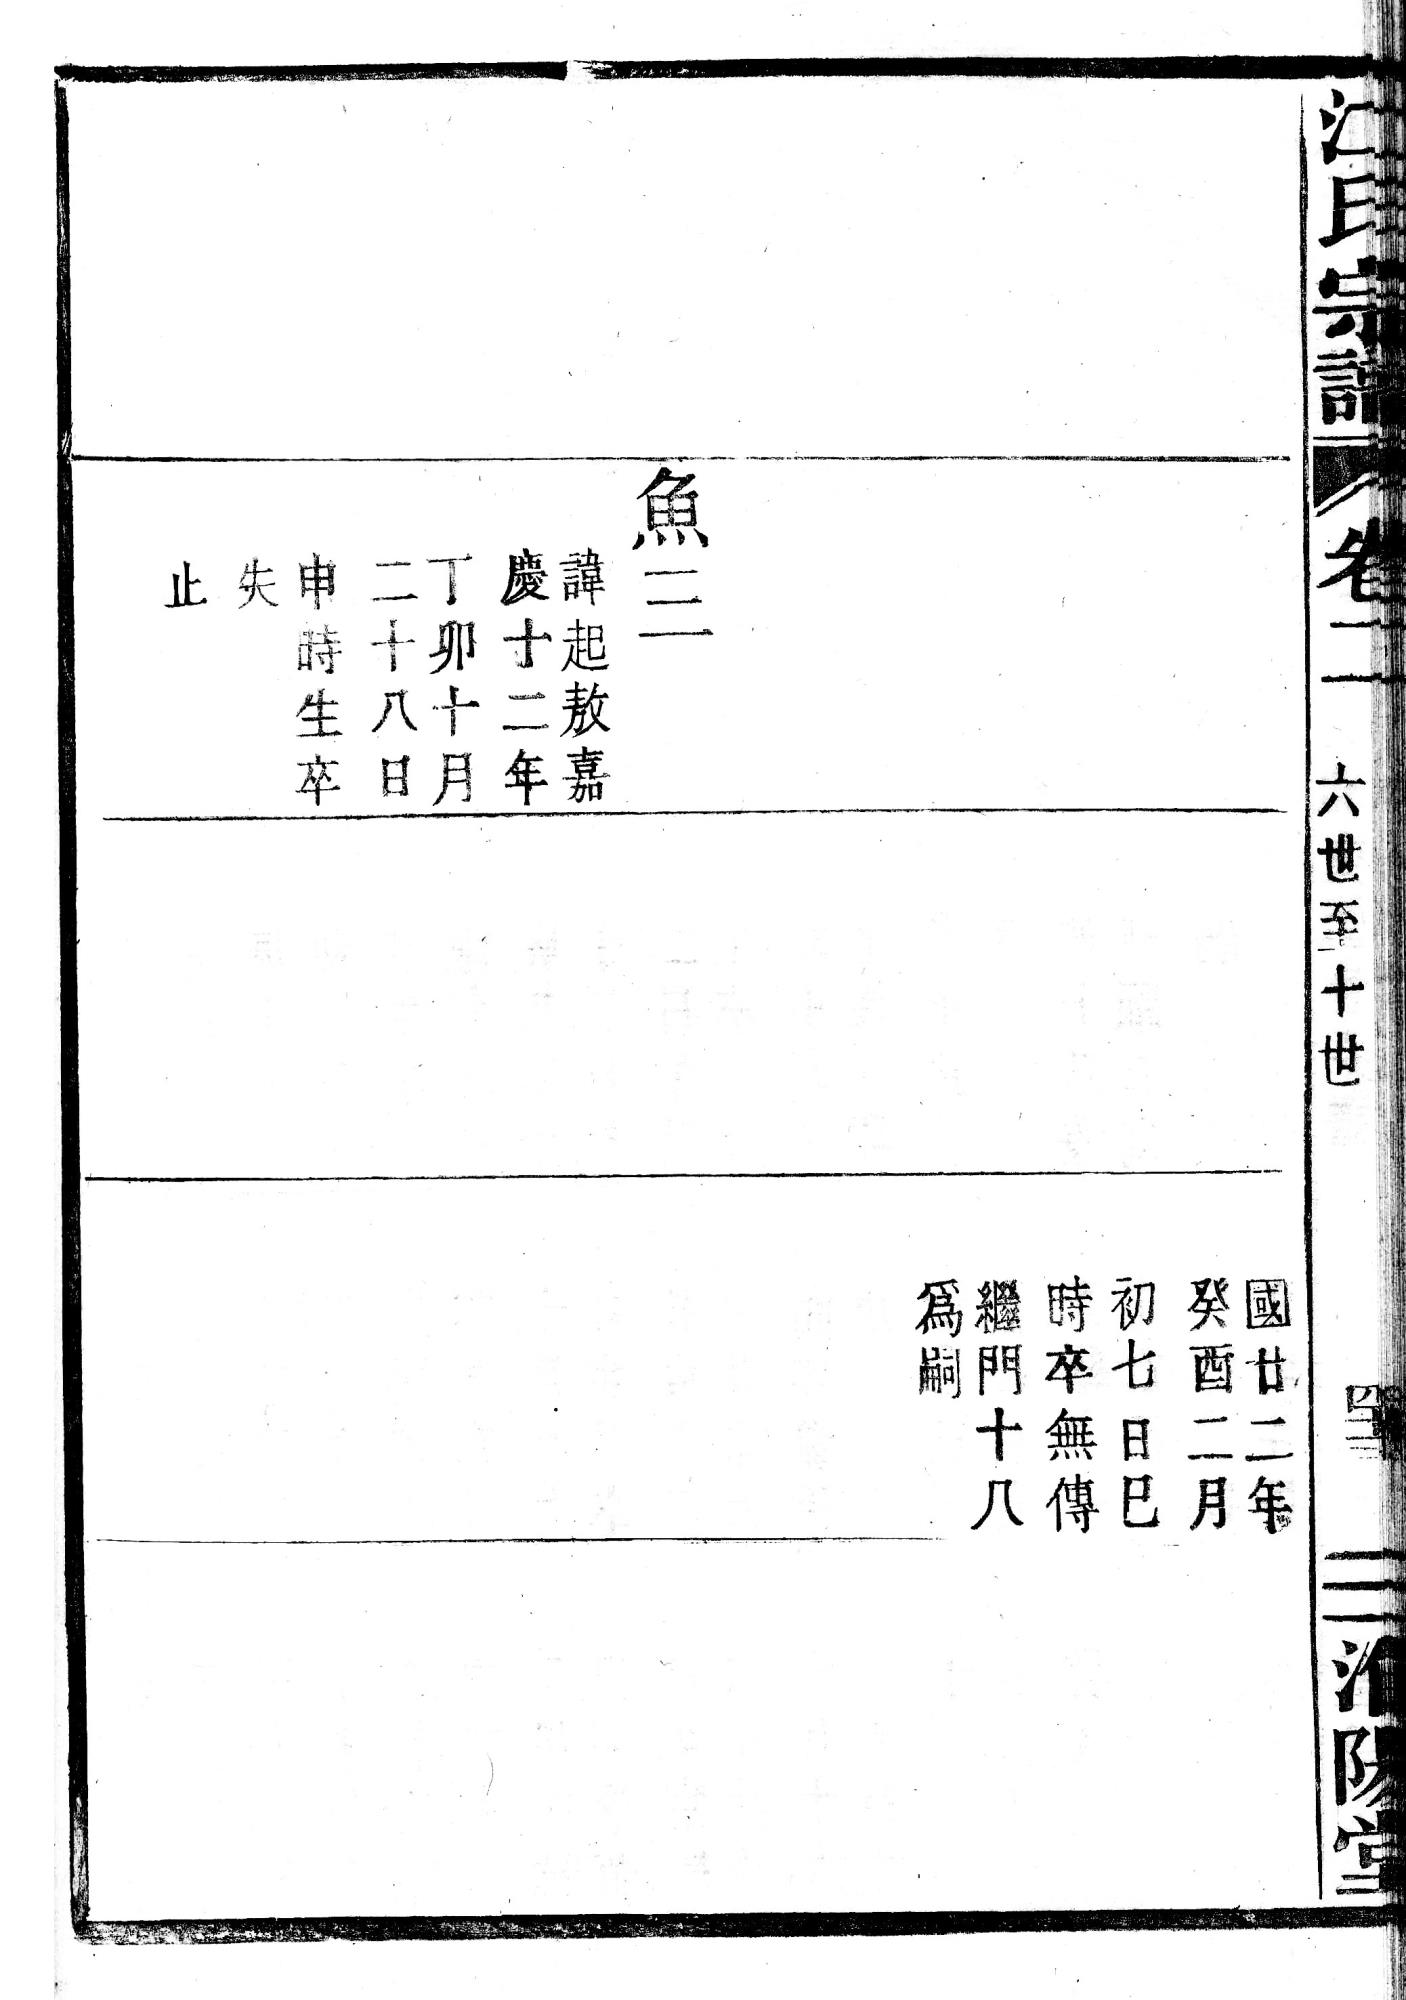 江氏宗譜
卷二
六世至十世
淮陽堂
魚三
諱起敖嘉
慶十二年
丁卯十月
二十八日
申時生卒
失
止
國廿二年
癸酉二月
初七日巳
時卒無傳
繼門十八
爲嗣